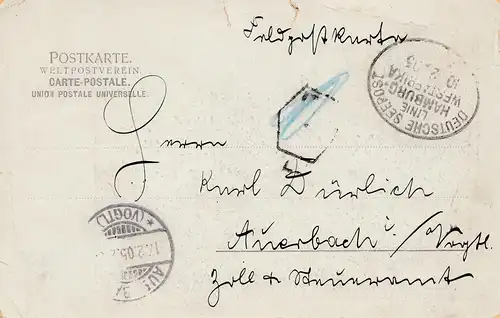 Feldpostkarte
POSTKARTE.
WELTPOSTVEREIN.
CARTE-POSTALE.
UNION POSTALE UNIVERSELLE.
DEUTSCHE SEEPOST
LINIE
HAMBURG-
WESTAFRIKA
Herrn
Karl Dürlich
Auerbach i/Vogtl.
Zoll & Steueramt
* (VOGTL)
.2.05.